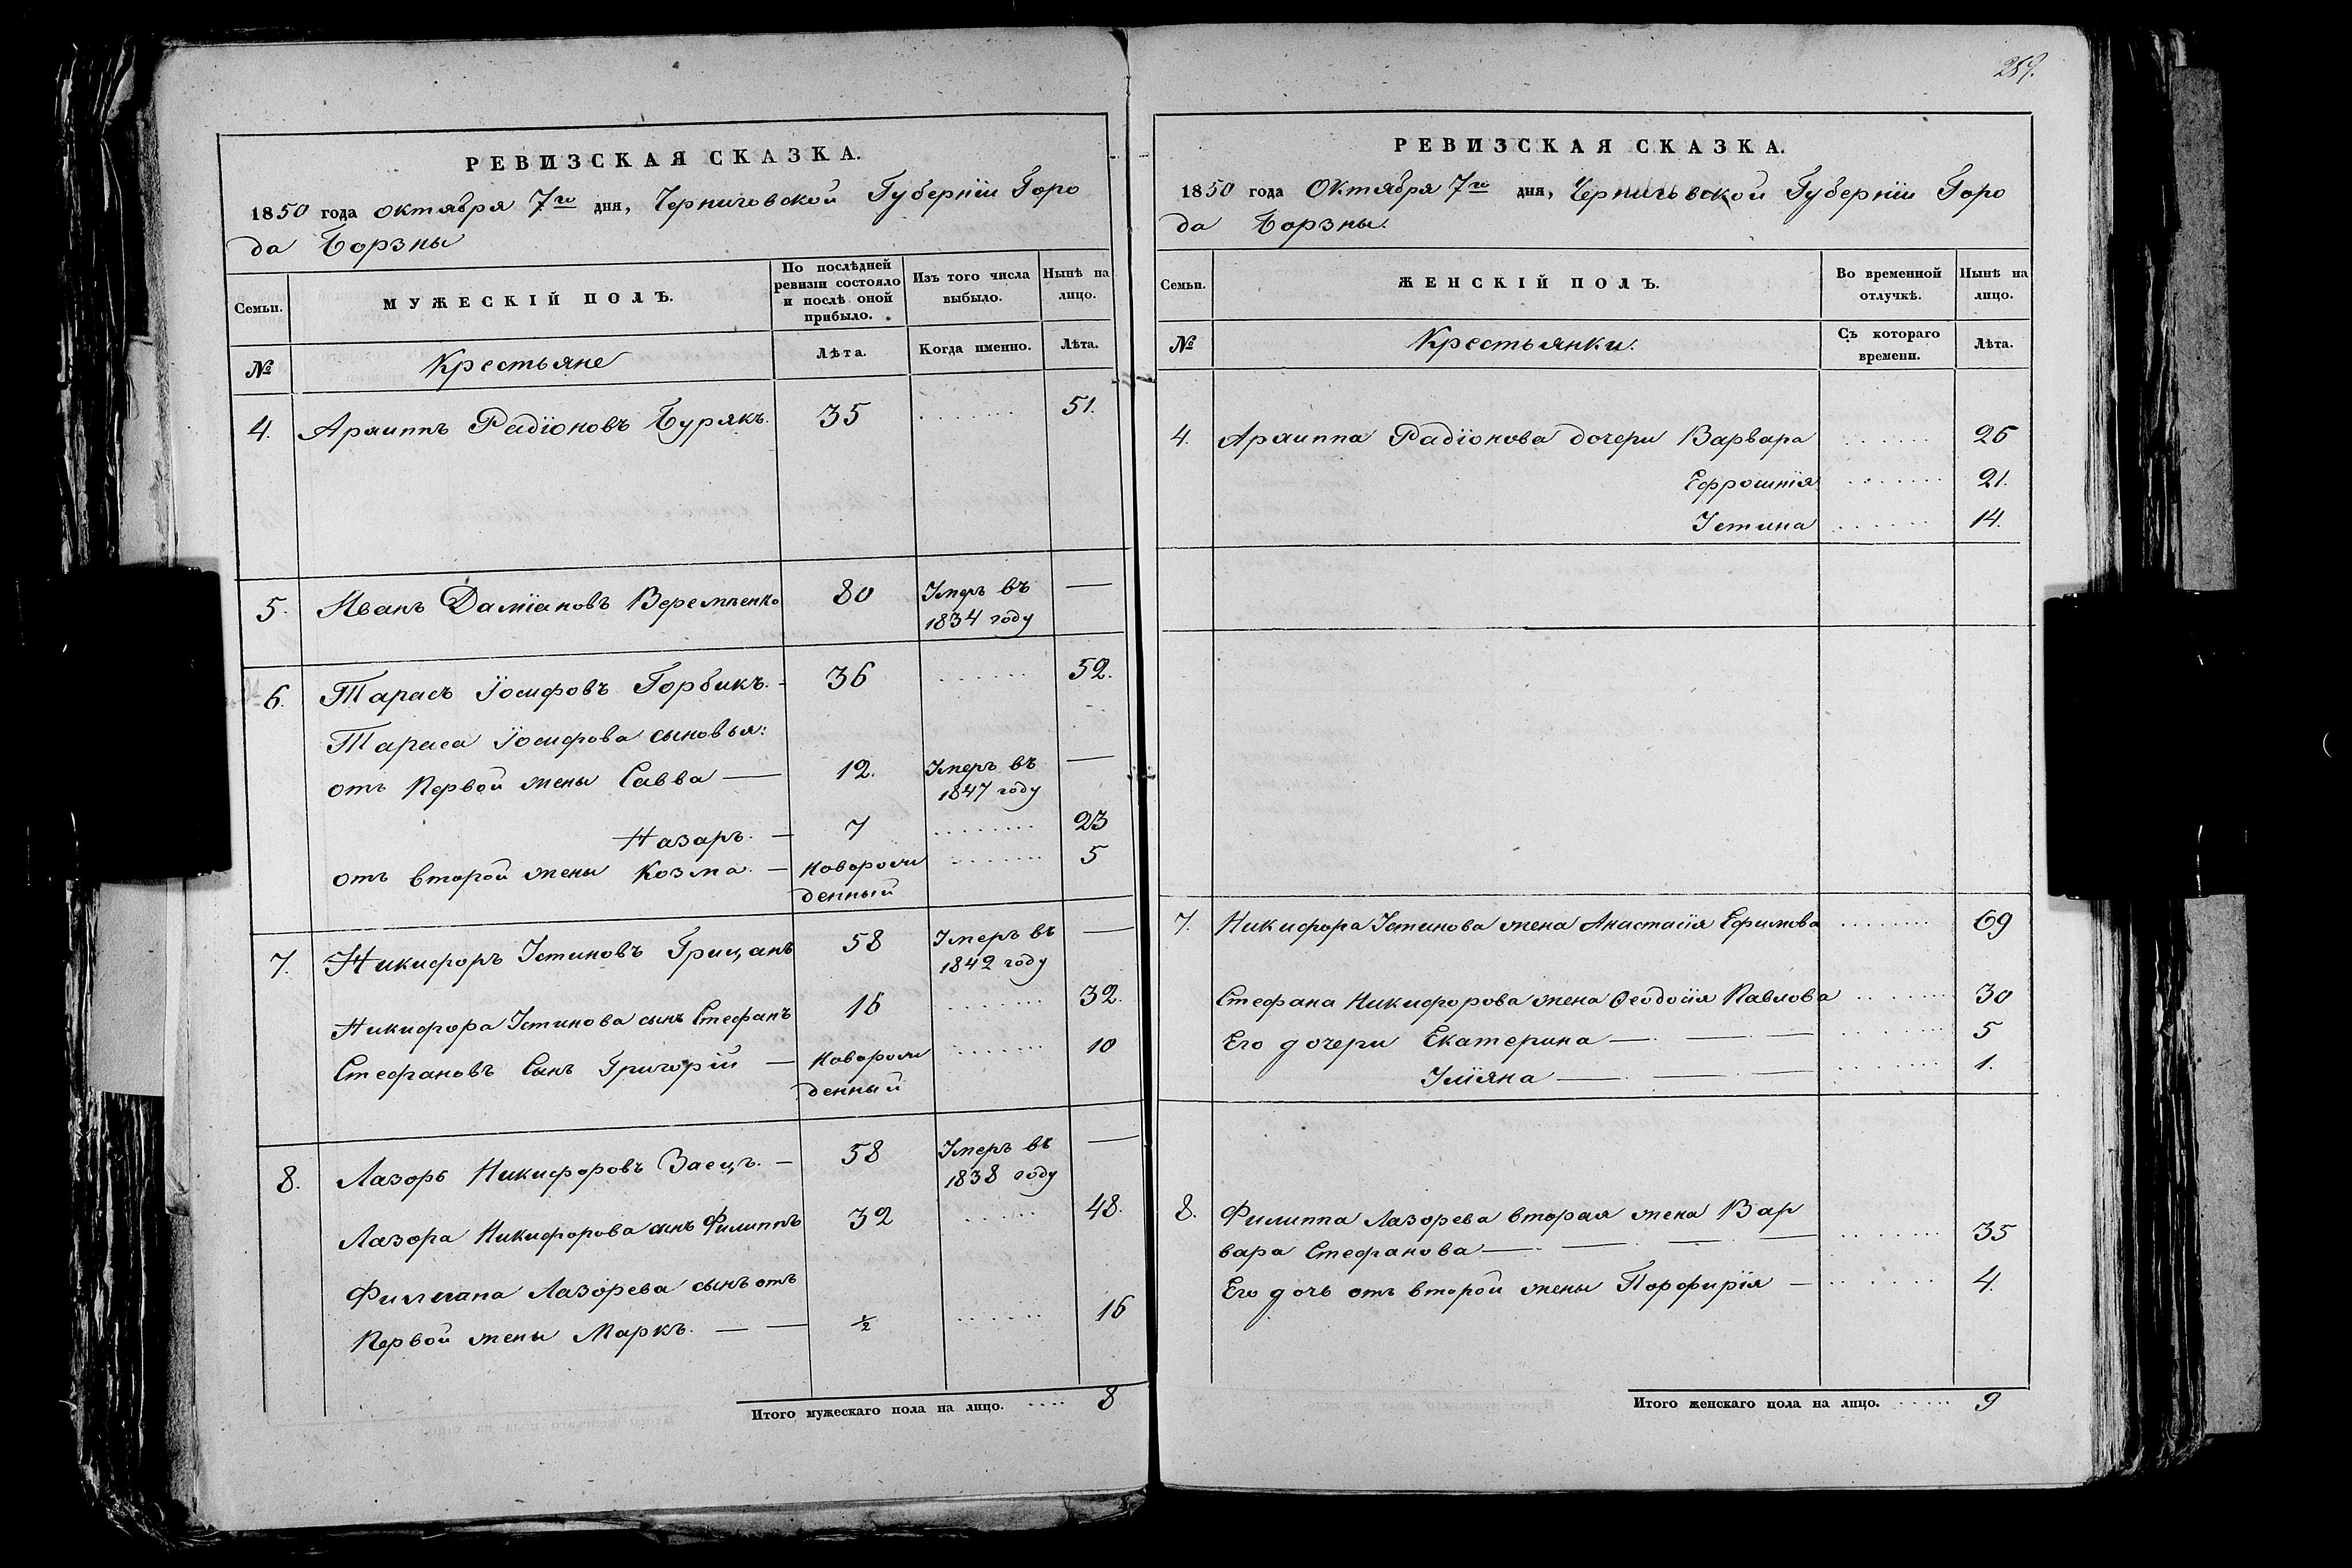 РЕВИЗСКАЯ СКАЗКА.
1850 года октября 7го дня, Черниговской Губерніи Горо
да Борзны
Семьи. МУЖЕСКІЙ ПОЛЪ. По послѣдней ревизіи состояло и послѣ оной прибыло. Изъ того числа выбыло. Нынѣ на лицо.
№ Крестьяне Лѣта. Когда именно. Лѣта.
4. Архиппъ Радіоновъ Бурякъ. 35 51.
5. Иванъ Даміановъ Веремѣенко 80 Умеръ въ —
1834 году
6. Тарасъ Іосифовъ Горбикъ. 36 52.
Тараса Іосифова сыновья:
отъ Первой жены Савва — 12. Умеръ въ —
1847 году
Назаръ. — 7 23
отъ второй жены Козма. — Новорож 5
денный
7. Никифоръ Устиновъ Грицанъ 58 Умеръ въ —
1842 году
Никифора Устинова сынъ Стефанъ 16 32.
Стефановъ Сынъ Григорій — Новорож 10
денный
8. Лазорь Никифоровъ Заецъ. — 58 Умеръ въ —
1838 году
Лазора Никифорова сынъ Филиппъ 32 48.
Филиппа Лазорева сынъ отъ
Первой жены Маркъ. — — ½ 16
Итого мужескаго пола на лицо. 8
РЕВИЗСКАЯ СКАЗКА.
1850 года Октября 7го дня, Черниговской Губерніи Горо
да Борзны.
Семьи. ЖЕНСКІЙ ПОЛЪ. Во временной отлучкѣ. Нынѣ на лицо.
№ Крестьянки. Съ котораго времени. Лѣта.
4. Архиппа Радіонова дочери Варвара 26
Ефросинія 21.
Устина 14.
7. Никифора Устинова жена Анастасія Ефимова 69
Стефана Никифорова жена Ѳеодосія Павлова 30
Его дочери Екатерина — — — 5
Уліяна — — — 1.
8. Филиппа Лазорева вторая жена Вар
вара Стефанова — — — — 35
Его дочь отъ второй жены Порфирія — 4.
Итого женскаго пола на лицо. 9